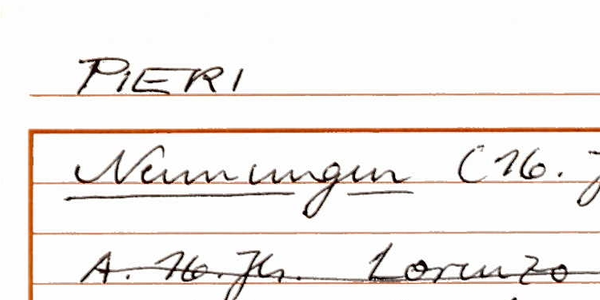 PIERI
Nennungen (16. J
A. 16. Jh. Lorenzo